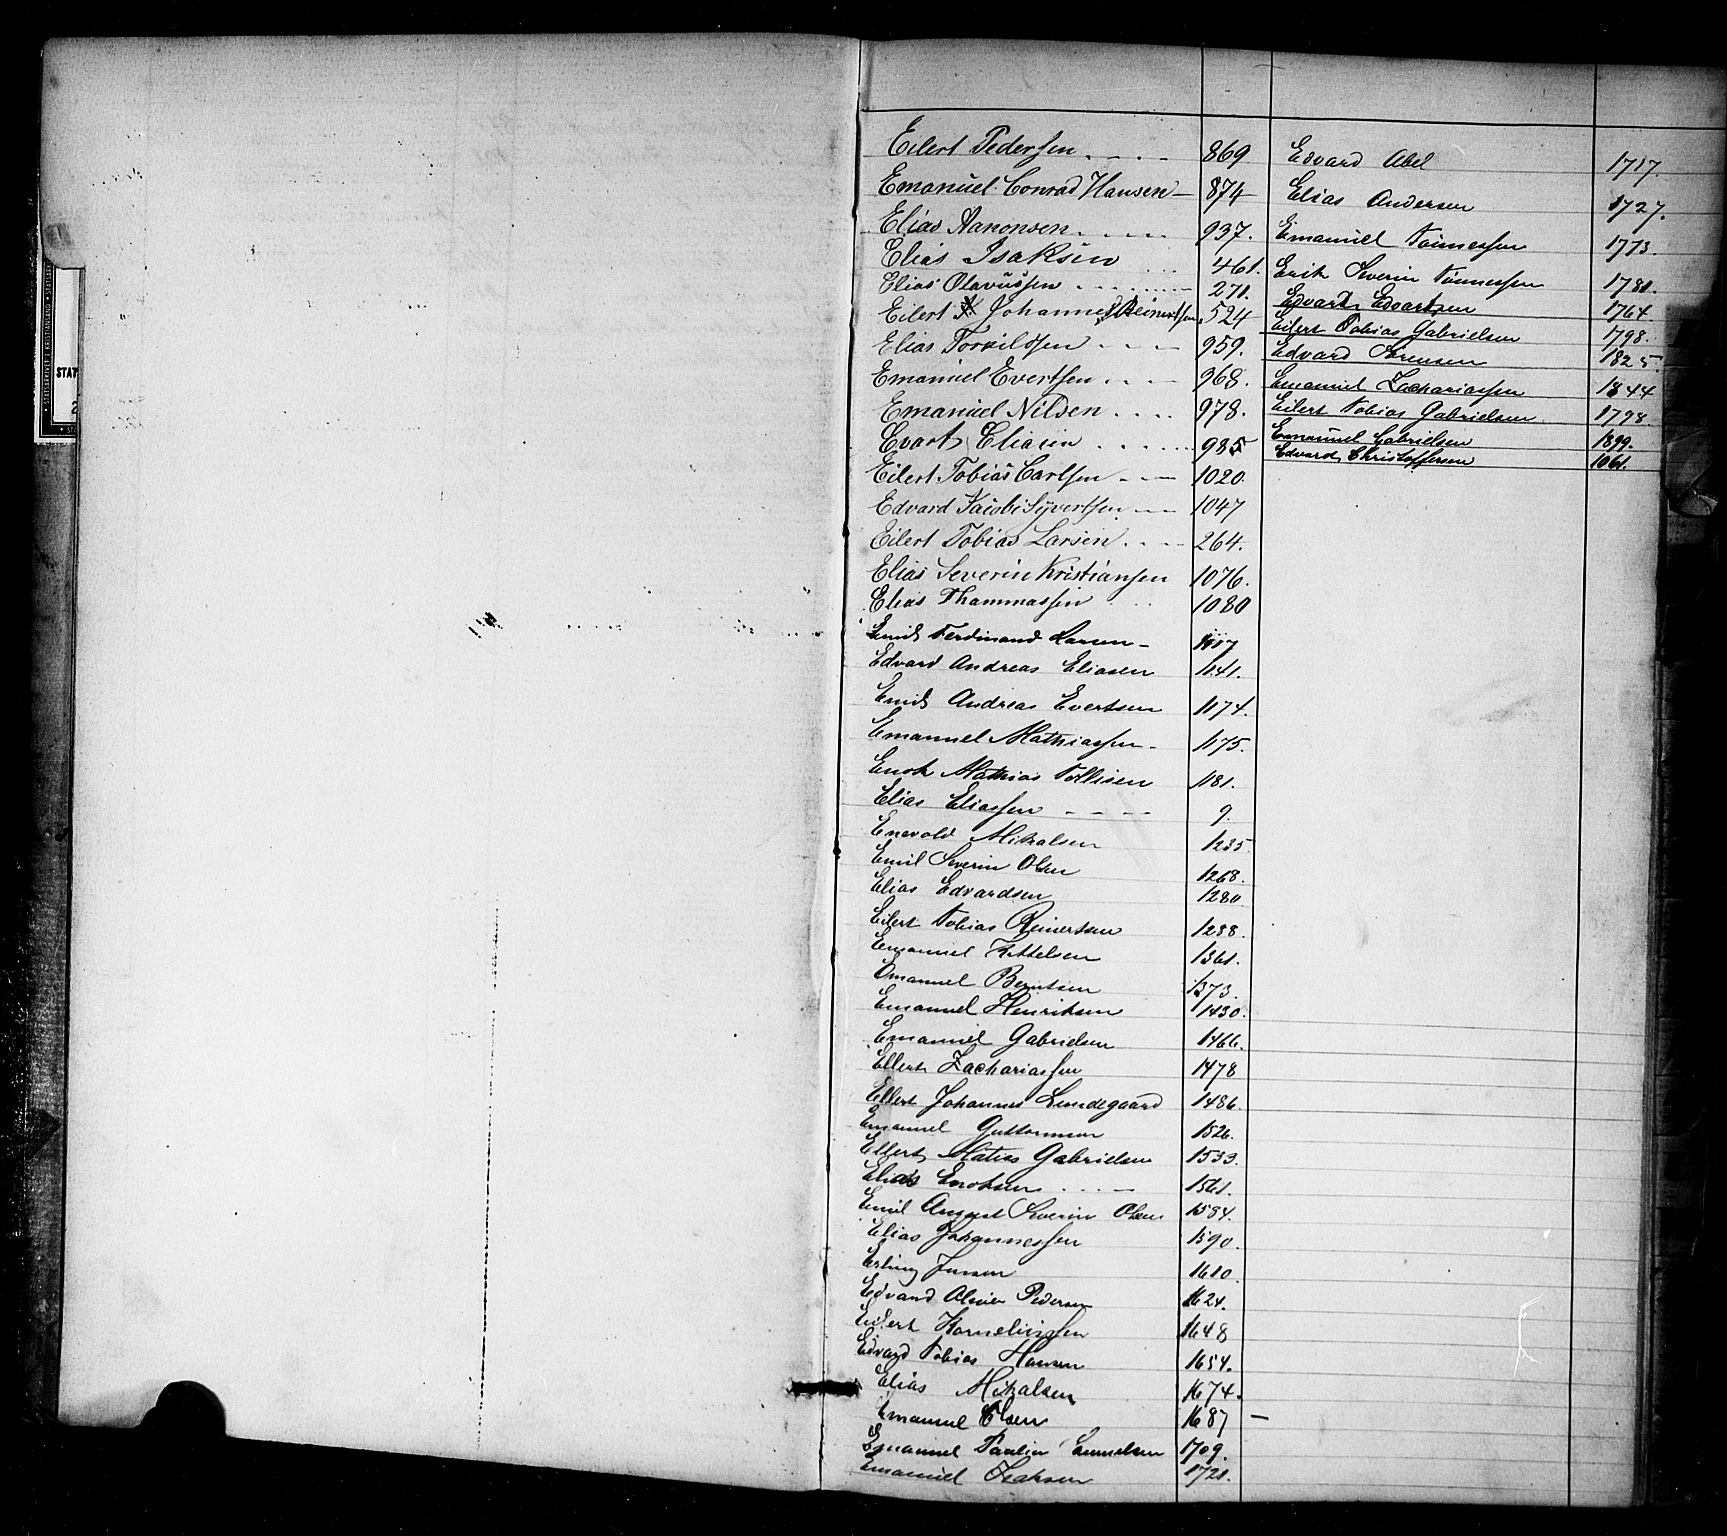 Eilert Pedersen 869
Emanuel Conrad Hansen 874
Elias Aanonsen 937.
Elias Isaksen 461.
Elias Olavussen 271.
Eilert Johannes Reinertsen 524
Elias Torkildsen 959.
Emanuel Evertsen 968.
Emanuel Nilsen 978.
Evart Eliasen 985
Eilert Tobias Carlsen 1020.
Edvard Jacob Syvertsen 1047
Eilert Tobias Larsen 264.
Elias Severin Kristiansen 1076.
Elias Thommassen 1080
Emil Ferdinand Larsen 1117
Edvard Andreas Eliasen 1141.
Emil Andreas Evertsen 1174.
Emanuel Mathiassen 1175.
Enok Mathias Tollisen 1181.
Elias Eliassen 9.
Enevold Mikalsen 1235.
Emil Severin Olsen 1268.
Elias Edvardsen 1280
Eilert Tobias Reinertsen 1288.
Emanuel Kittelsen 1361.
Omanuel Berntsen 1373.
Emanuel Henriksen 1430.
Emanuel Gabrielsen 1466.
Ellert Zachariassen 1478
Ellert Johannes Lundegaard 1486.
Emanuel Guttormsen 1526.
Ellert Matias Gabrielsen 1533.
Elias Enoksen 1561.
Emil August Severin Olsen 1584.
Elias Johannessen 1590.
Erling Jensen 1610.
Edvard Oliver Pedersen 1624.
Eilert Korneliussen 1648
Edvard Tobias Hansen 1654.
Elias Mikalsen 1674.
Emanuel Olsen 1687 —
Emanuel Paulin Samuelsen 1709.
Emanuel Isaksen 1721.
Edvard Abel 1717.
Elias Andersen 1727.
Emanuel Tønnessen 1773.
Erik Severin Tønnessen 1781.
Edvart Edvartsen 1764
Eilert Tobias Gabrielsen 1798.
Edvard Sørensen 1825.
Emanuel Zachariassen 1844
Eilert Tobias Gabrielsen 1798
Emanuel Gabrielsen 1899.
Edvard Christoffersen 1061.
STAT
2